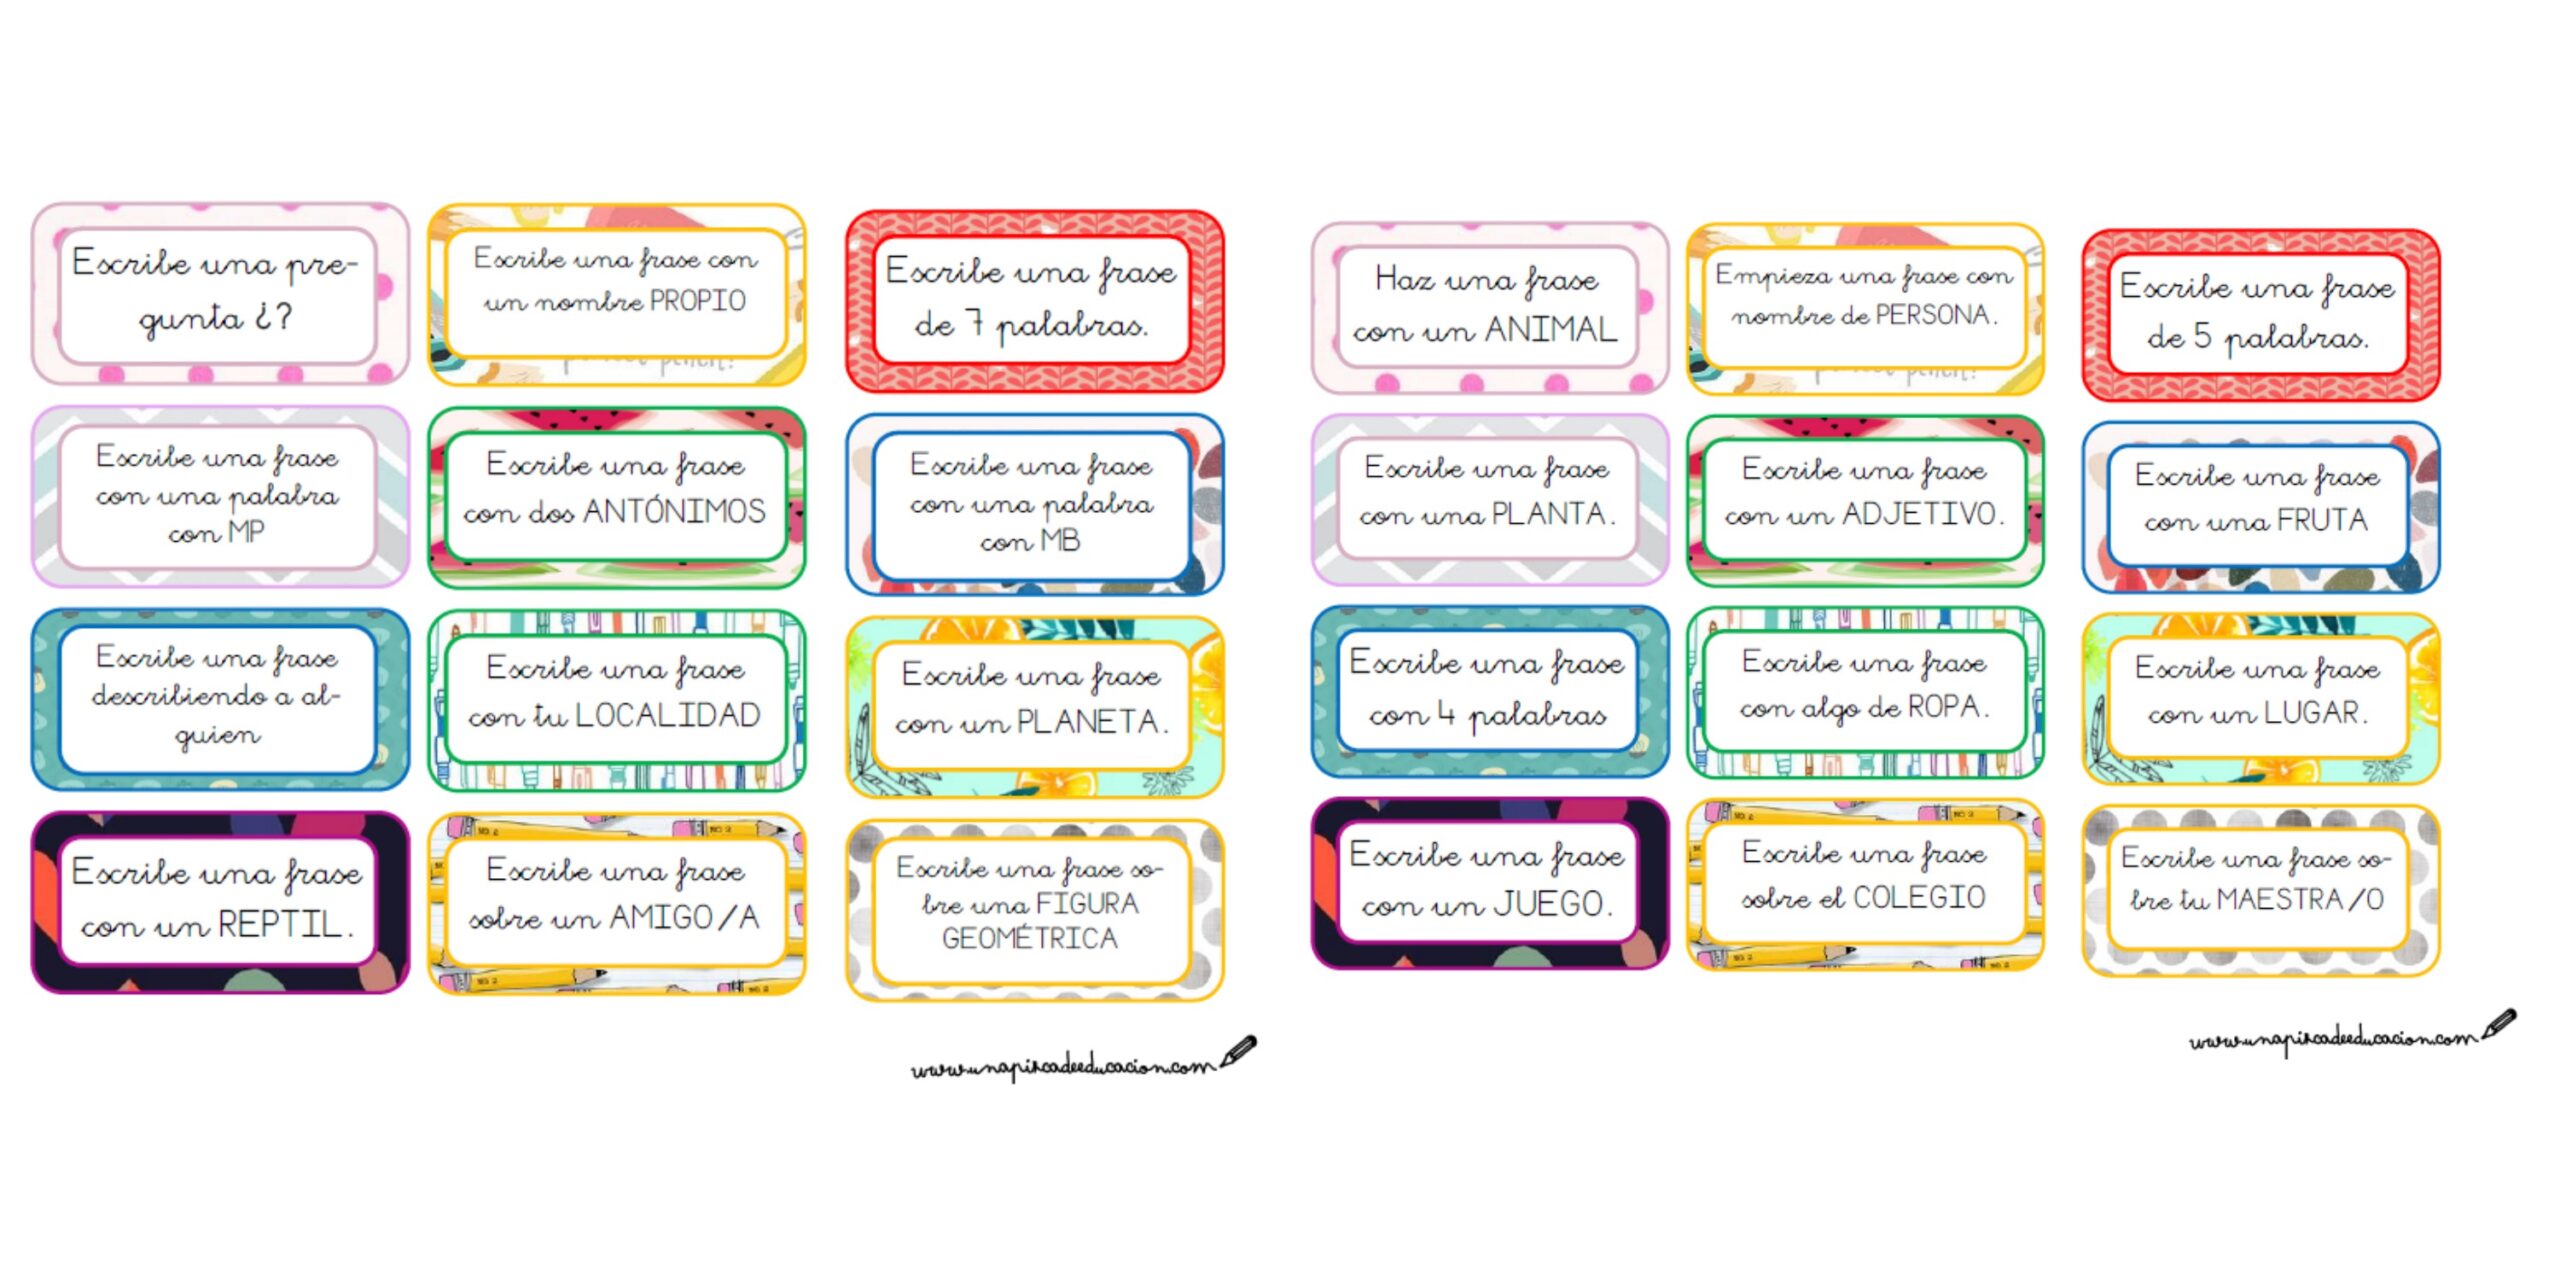 Escribe una pre-
gunta ¿?
Escribe una frase con
un nombre PROPIO
Escribe una frase
de 7 palabras.
Escribe una frase
con una palabra
con MP
Escribe una frase
con dos ANTÓNIMOS
Escribe una frase
con una palabra
con MB
Escribe una frase
describiendo a al-
guien
Escribe una frase
con tu LOCALIDAD
Escribe una frase
con un PLANETA.
Escribe una frase
con un REPTIL.
Escribe una frase
sobre un AMIGO/A
Escribe una frase so-
bre una FIGURA
GEOMÉTRICA
www.unapizcadeeducacion.com
Haz una frase
con un ANIMAL
Empieza una frase con
nombre de PERSONA.
Escribe una frase
de 5 palabras.
Escribe una frase
con una PLANTA.
Escribe una frase
con un ADJETIVO.
Escribe una frase
con una FRUTA
Escribe una frase
con 4 palabras
Escribe una frase
con algo de ROPA.
Escribe una frase
con un LUGAR.
Escribe una frase
con un JUEGO.
Escribe una frase
sobre el COLEGIO
Escribe una frase so-
bre tu MAESTRA/O
www.unapizcadeeducacion.com